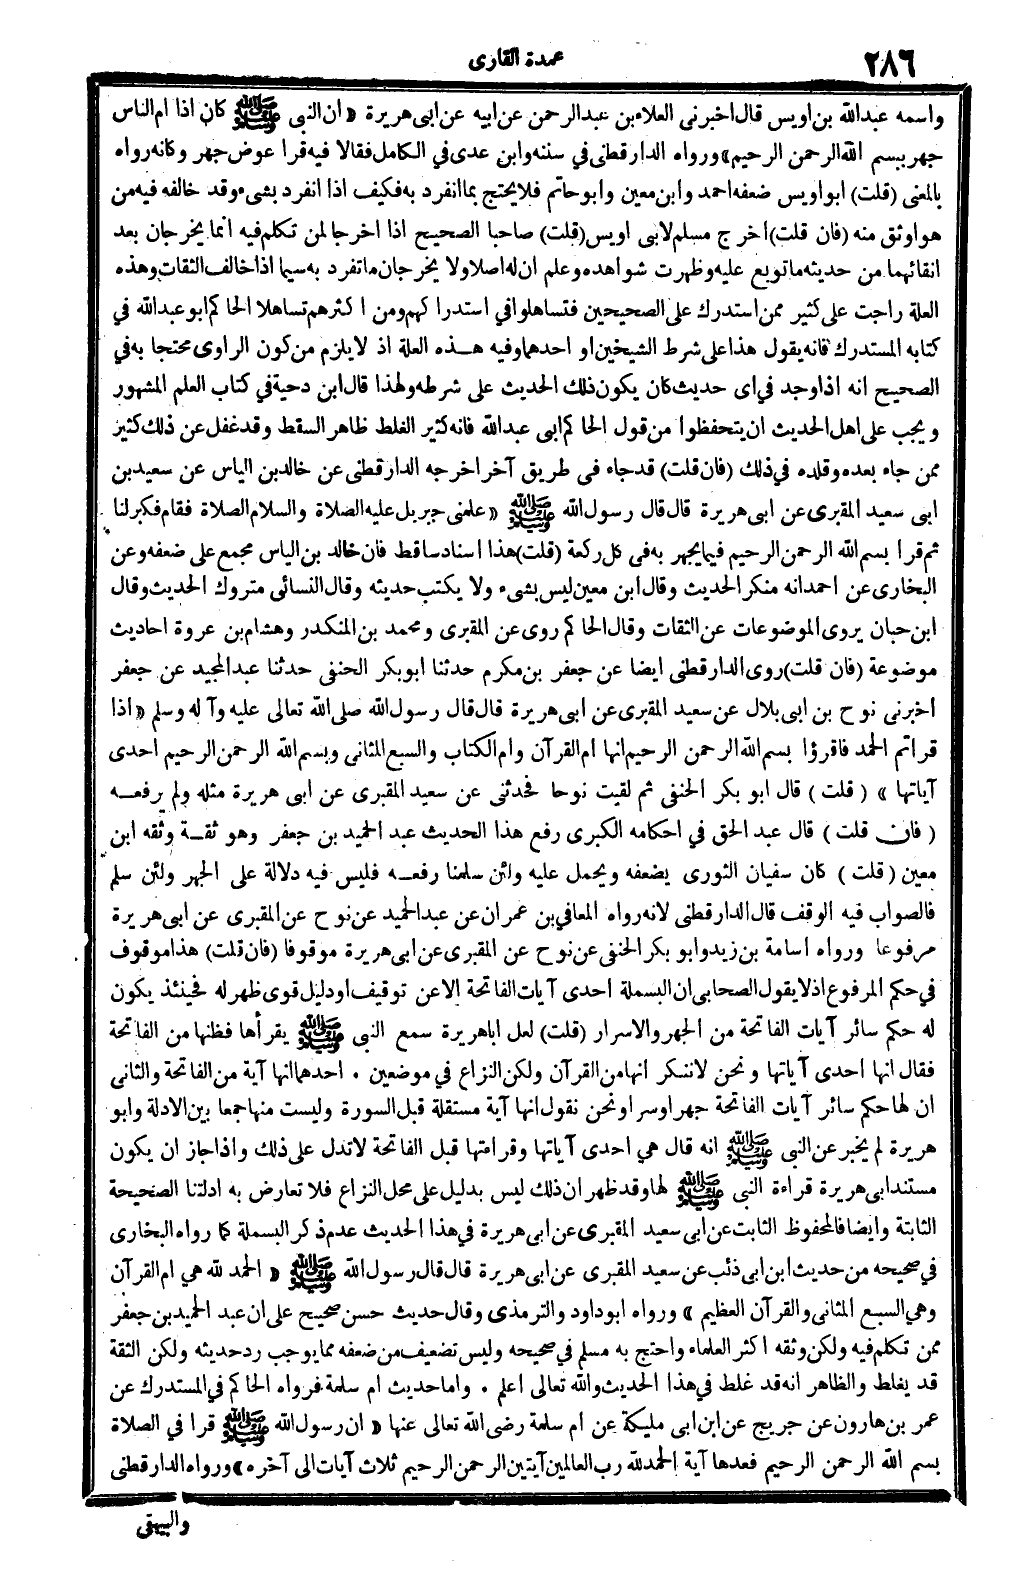 ٢٨٦
عمدة القارى
واسمه عبدالله بن اويس قال اخبرنى العلاء بن عبدالرحمن عن ابيه عن ابى هريرة « ان النبى ﷺ كان اذا ام الناس
جهر ببسم الله الرحمن الرحيم» ورواه الدارقطنى في سننه وابن عدى في الكامل فقالا فيه قرا عوض جهر وكانه رواه
بالمعنى (قلت) ابو اويس ضعفه احمد وابن معين وابو حاتم فلا يحتج بما انفرد به فكيف اذا انفرد بشىء وقد خالفه فيه من
هو اوثق منه (فان قلت) اخرج مسلم لابى اويس (قلت) صاحبا الصحيح اذا اخرجا لمن تكلم فيه انما يخرجان بعد
انقائهما من حديثه ما توبع عليه وظهرت شواهده وعلم ان له اصلا ولا يخرجان ما تفرد به سيما اذا خالف الثقات وهذه
العلة راجت على كثير ممن استدرك على الصحيحين فتساهلوا في استدراكهم ومن اكثرهم تساهلا الحاكم ابو عبدالله في
كتابه المستدرك فانه يقول هذا على شرط الشيخين او احدهما وفيه هذه العلة اذ لا يلزم من كون الراوى محتجا به في
الصحيح انه اذا وجد في اى حديث كان يكون ذلك الحديث على شرطه ولهذا قال ابن دحية في كتاب العلم المشهور
ويجب على اهل الحديث ان يتحفظوا من قول الحاكم ابى عبدالله فانه كثير الغلط ظاهر السقط وقد غفل عن ذلك كثير
ممن جاء بعده وقلده في ذلك (فان قلت) قد جاء فى طريق آخر اخرجه الدارقطنى عن خالد بن الياس عن سعيد بن
ابى سعيد المقبرى عن ابى هريرة قال قال رسول الله ﷺ « علمنى جبريل عليه الصلاة والسلام الصلاة فقام فكبر لنا
ثم قرا بسم الله الرحمن الرحيم فيما يجهر به فى كل ركعة (قلت) هذا اسناد ساقط فان خالد بن الياس مجمع على ضعفه وعن
البخارى عن احمد انه منكر الحديث وقال ابن معين ليس بشىء ولا يكتب حديثه وقال النسائى متروك الحديث وقال
ابن حبان يروى الموضوعات عن الثقات وقال الحاكم روى عن المقبرى ومحمد بن المنكدر وهشام بن عروة احاديث
موضوعة (فان قلت) روى الدارقطنى ايضا عن جعفر بن مكرم حدثنا ابو بكر الحنفى حدثنا عبدالمجيد عن جعفر
اخبرنى نوح بن ابى بلال عن سعيد المقبرى عن ابى هريرة قال قال رسول الله صلى الله تعالى عليه وآله وسلم « اذا
قراتم الحمد فاقرؤا بسم الله الرحمن الرحيم انها ام القرآن وام الكتاب والسبع المثانى وبسم الله الرحمن الرحيم احدى
آياتها » ( قلت ) قال ابو بكر الحنفى ثم لقيت نوحا فحدثنى عن سعيد المقبرى عن ابى هريرة مثله ولم يرفعه
( فان قلت ) قال عبد الحق في احكامه الكبرى رفع هذا الحديث عبد الحميد بن جعفر وهو ثقة وثقه ابن
معين ( قلت ) كان سفيان الثورى يضعفه ويحمل عليه ولئن سلمنا رفعه فليس فيه دلالة على الجهر ولئن سلم
فالصواب فيه الوقف قال الدارقطنى لانه رواه المعافي بن عمران عن عبدالحميد عن نوح عن المقبرى عن ابى هريرة
مرفوعا ورواه اسامة بن زيد وابو بكر الحنفى عن نوح عن المقبرى عن ابى هريرة موقوفا (فان قلت) هذا موقوف
في حكم المرفوع اذ لا يقول الصحابى ان البسملة احدى آيات الفاتحة الا عن توقيف او دليل قوى ظهر له فحينئذ يكون
له حكم سائر آيات الفاتحة من الجهر والاسرار (قلت) لعل ابا هريرة سمع النبى ﷺ يقرأها فظنها من الفاتحة
فقال انها احدى آياتها ونحن لاننكر انها من القرآن ولكن النزاع في موضعين . احدهما انها آية من الفاتحة والثانى
ان لها حكم سائر آيات الفاتحة جهرا وسرا ونحن نقول انها آية مستقلة قبل السورة وليست منها جمعا بين الادلة وابو
هريرة لم يخبر عن النبى ﷺ انه قال هي احدى آياتها وقراءتها قبل الفاتحة لا تدل على ذلك واذا جاز ان يكون
مستند ابى هريرة قراءة النبى ﷺ لها وقد ظهر ان ذلك ليس بدليل على محل النزاع فلا تعارض به ادلتنا الصحيحة
الثابتة وايضا فالمحفوظ الثابت عن ابى سعيد المقبرى عن ابى هريرة في هذا الحديث عدم ذكر البسملة كما رواه البخارى
في صحيحه من حديث ابن ابى ذئب عن سعيد المقبرى عن ابى هريرة قال قال رسول الله ﷺ « الحمد لله هي ام القرآن
وهي السبع المثانى والقرآن العظيم » ورواه ابو داود والترمذى وقال حديث حسن صحيح على ان عبد الحميد بن جعفر
ممن تكلم فيه ولكن وثقه اكثر العلماء واحتج به مسلم في صحيحه وليس تضعيف من ضعفه مما يوجب رد حديثه ولكن الثقة
قد يغلط والظاهر انه قد غلط في هذا الحديث والله تعالى اعلم . واما حديث ام سلمة فرواه الحاكم في المستدرك عن
عمر بن هارون عن جريج عن ابن ابى مليكة عن ام سلمة رضى الله تعالى عنها « ان رسول الله ﷺ قرا في الصلاة
بسم الله الرحمن الرحيم فعدها آية الحمدلله رب العالمين آيتين الرحمن الرحيم ثلاث آيات الى آخره » ورواه الدارقطنى
والبيهقى